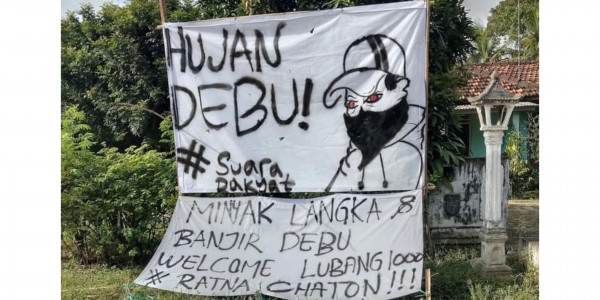 HUJAN
DEBU!
# Suara
Rakyat
MINYAK LANGKA &
BANJIR DEBU
WELCOME LUBANG 1000
# RATNA CHATON!!!